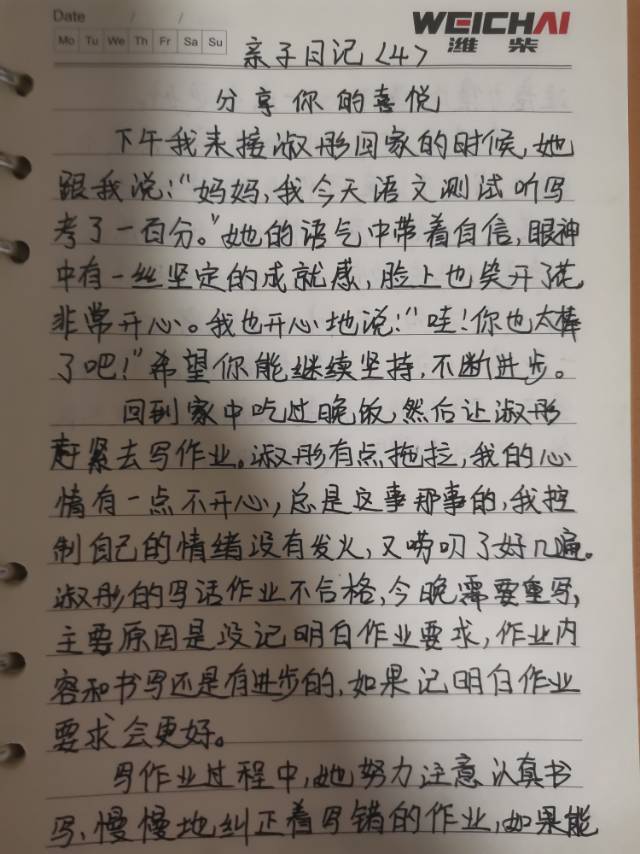 Date / /
Mo Tu We Th Fr Sa Su
WEICHAI
潍柴
亲子日记〈4〉
分享你的喜悦
下午我来接淑彤回家的时候,她
跟我说:“妈妈,我今天语文测试听写
考了一百分。”她的语气中带着自信,眼神
中有一丝坚定的成就感,脸上也笑开了花
非常开心。我也开心地说:“哇!你也太棒
了吧!”希望你能继续坚持,不断进步。
回到家中吃过晚饭,然后让淑彤
赶紧去写作业。淑彤有点拖拉,我的心
情有一点不开心,总是这事那事的,我控
制自己的情绪没有发火,又唠叨了好几遍。
淑彤的写话作业不合格,今晚需要重写,
主要原因是没记明白作业要求,作业内
容和书写还是有进步的,如果记明白作业
要求会更好。
写作业过程中,她努力注意认真书
写、慢慢地纠正着写错的作业,如果能